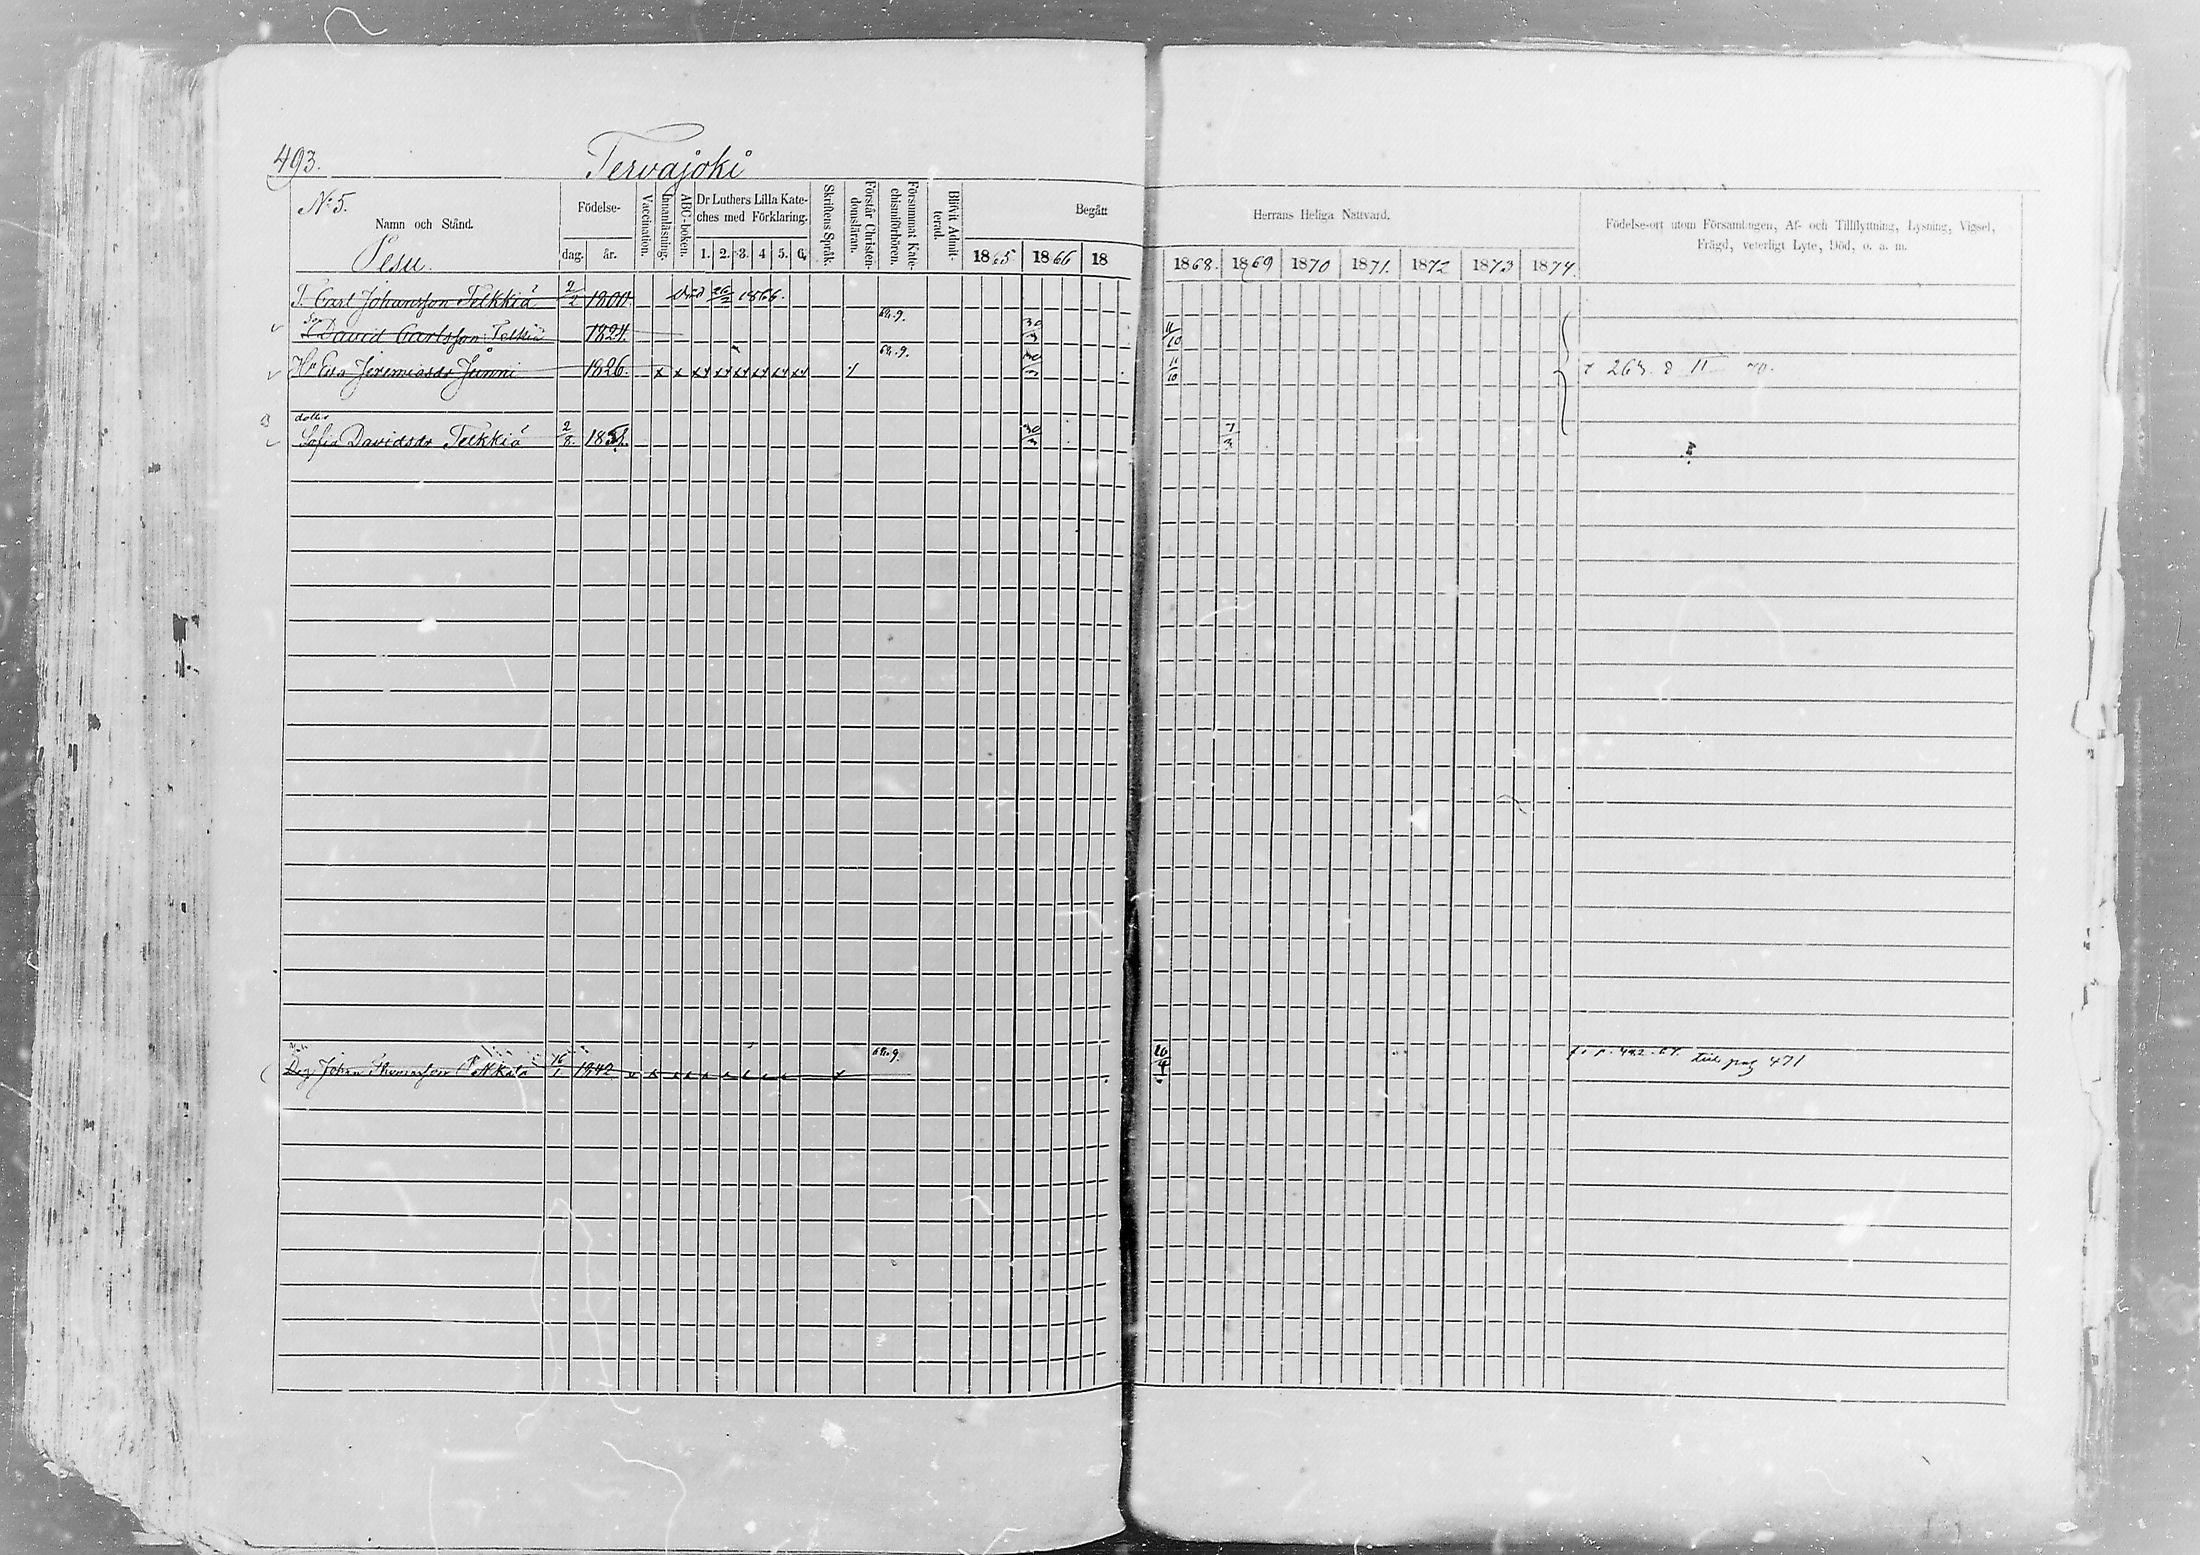 493.
Tervajoki
No 5.
Namn och Stånd.
Pesu.
Födelse-
dag. år.
Vaccination.
Innanläsning.
ABC-boken.
Dr Luthers Lilla Kate-
ches med Förklaring.
1. 2. 3. 4 5. 6.
Skriftens Språk.
Förstår Christen-
domsläran.
Försummat Kate-
chismiförhören.
Blifvit Admit-
terad.
Begått
1865 1866 18
Herrans Heliga Nattvard.
1868. 1869 1870 1871. 1872 1873 1874
Födelse-ort utom Församlingen, Af- och Tillflyttning, Lysning, Vigsel,
Frägd, veterligt Lyte, Död, o. a. m.
T. Carl Johansson Telkkiä 2/2 1800. död 26/2 1866.
Son David Carlsson Telkiä 1824. 68.9. 30/3 11/10
Hu Eva Jeremiasdr Junni 1826. x x xx xx xx xx xx xx 68.9. 30/3 11/10 263. 70.
dotter
Sofia Davidsdr Telkkiä 2/8. 30/3 7/3
Drg. Johan 16/1 1842 68.9. till pag 471